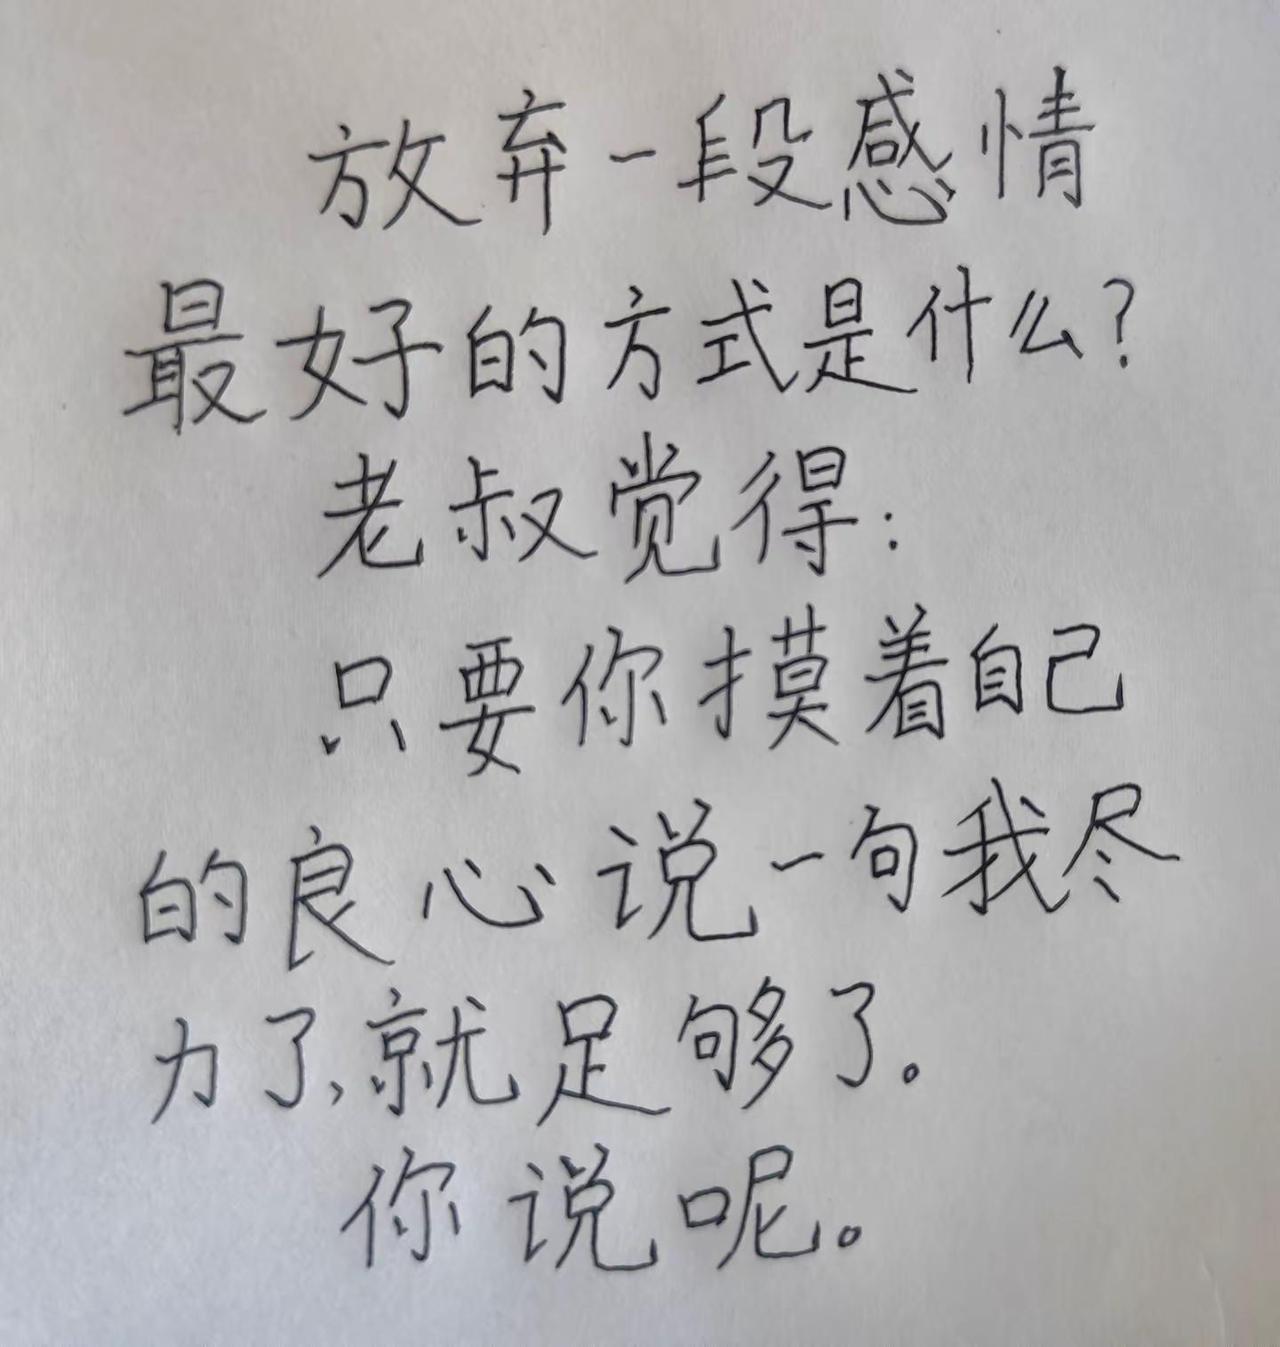 放弃一段感情
最好的方式是什么?
老叔觉得:
只要你摸着自己
的良心说一句我尽
力了、就足够了。
你说呢。